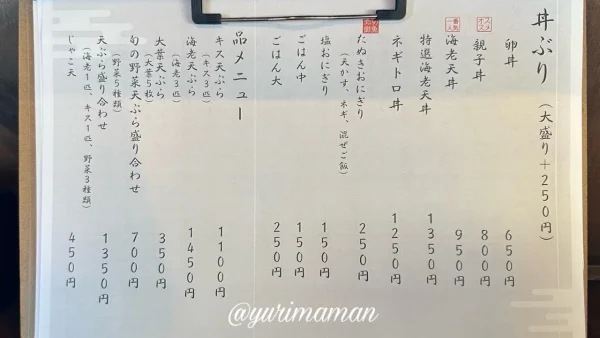 丼ぶり（大盛り＋250円）
卵丼 650円
オススメ
親子丼 800円
一番人気
海老天丼 950円
特選海老天丼 1350円
ネギトロ丼 1250円
たぬきおにぎり 250円
（天かす、ネギ、混ぜご飯）
塩おにぎり 150円
ごはん中 150円
ごはん大 250円
品メニュー
キス天ぷら 1100円
（キス3匹）
海老天ぷら 1450円
（海老3匹）
大葉天ぷら 350円
（大葉5枚）
旬の野菜天ぷら盛り合わせ 700円
（野菜5種類）
天ぷら盛り合わせ 1350円
（海老1匹、キス1匹、野菜3種類）
じゃこ天 450円
@yurimaman